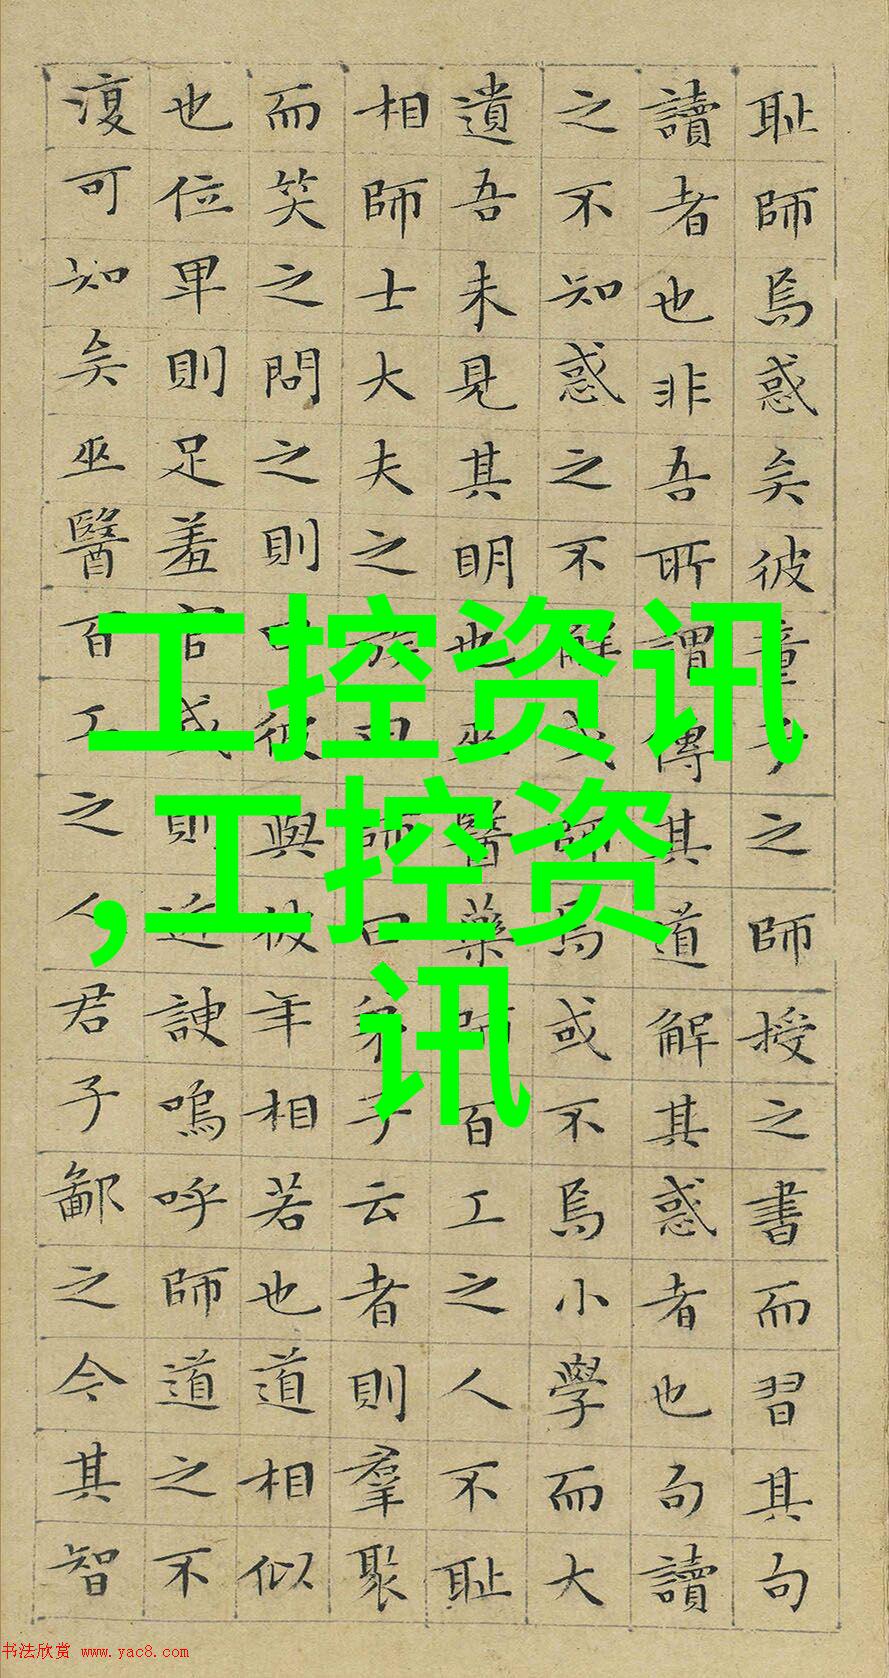 耻師焉惑矣彼童子之師授之書而習其句
讀者也非吾所謂傳其道解其惑者也句讀
之不知惑之不解或師焉或不焉小學而大
遺吾未見其明也巫醫藥師百工之人不耻
相師士大夫之族曰師曰弟子云者則羣聚
而笑之問之則曰彼與彼年相若也道相似
也位卑則足羞官盛則近諛嗚呼師道之不
復可知矣巫醫百工之人君子鄙之今其智
工控资讯
,工控资
讯
书法欣赏 www.yac8.com